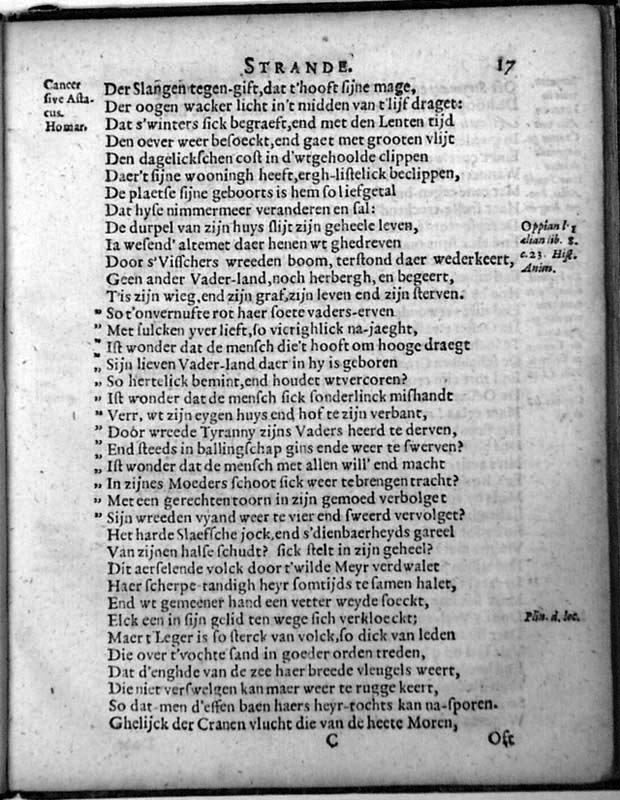 STRANDE. 17
Cancer
sive Asta-
cus.
Homar.
Der Slangen tegen-gift, dat t'hooft sijne mage,
Der oogen wacker licht in't midden van t'lijf draget:
Dat s'winters sick begraeft, end met den Lenten tijd
Den oever weer besoeckt, end gaet met grooten vlijt
Den dagelickschen cost in d'wtgehoolde clippen
Daer't sijne wooningh heeft, ergh-listelick beclippen,
De plaetse sijne geboorts is hem so liefgetal
Dat hyse nimmermeer veranderen en sal:
De durpel van zijn huys slijt zijn geheele leven,
Ia wesend' altemet daer henen wt ghedreven
Door s'Visschers wreeden boom, terstond daer wederkeert,
Geen ander Vader-land, noch herbergh, en begeert,
T'is zijn wieg, end zijn graf, zijn leven end zijn sterven.
Oppian l. 1
ælian lib. 8.
c. 23. Hist.
Anim.
" So t'onvernufte rot haer soete vaders-erven
" Met sulcken yver lieft, so vierighlick na-jaeght,
" Ist wonder dat de mensch die't hooft om hooge draegt
" Sijn lieven Vader-land daer in hy is geboren
" So hertelick bemint, end houdet wtvercoren?
" Ist wonder dat de mensch sick sonderlinck mishandt
" Verr, wt zijn eygen huys end hof te zijn verbant,
" Door wreede Tyranny zijns Vaders heerd te derven,
" End steeds in ballingschap gins ende weer te swerven?
" Ist wonder dat de mensch met allen will' end macht
" In zijnes Moeders schoot sick weer te brengen tracht?
" Met een gerechten toorn in zijn gemoed verbolget
" Sijn wreeden vyand weer te vier end sweerd vervolget?
Het harde Slaefsche jock, end s'dienbaerheyds gareel
Van zijnen halse schudt? sick stelt in zijn geheel?
Dit aerselende volck door t'wilde Meyr verdwalet
Haer scherpe-tandigh heyr somtijds te samen halet,
End wt gemeener hand een vetter weyde soeckt,
Elck een in sijn gelid ten wege sich verkloeckt;
Maer t Leger is so sterck van volck, so dick van leden
Plin. d. loc.
Die over t'vochte sand in goeder orden treden,
Dat d'enghde van de zee haer breede vleugels weert,
Die niet verswelgen kan maer weer te rugge keert,
So dat men d'effen baen haers heyr-tochts kan na-sporen.
Ghelijck der Cranen vlucht die van de heete Moren,
C Oft